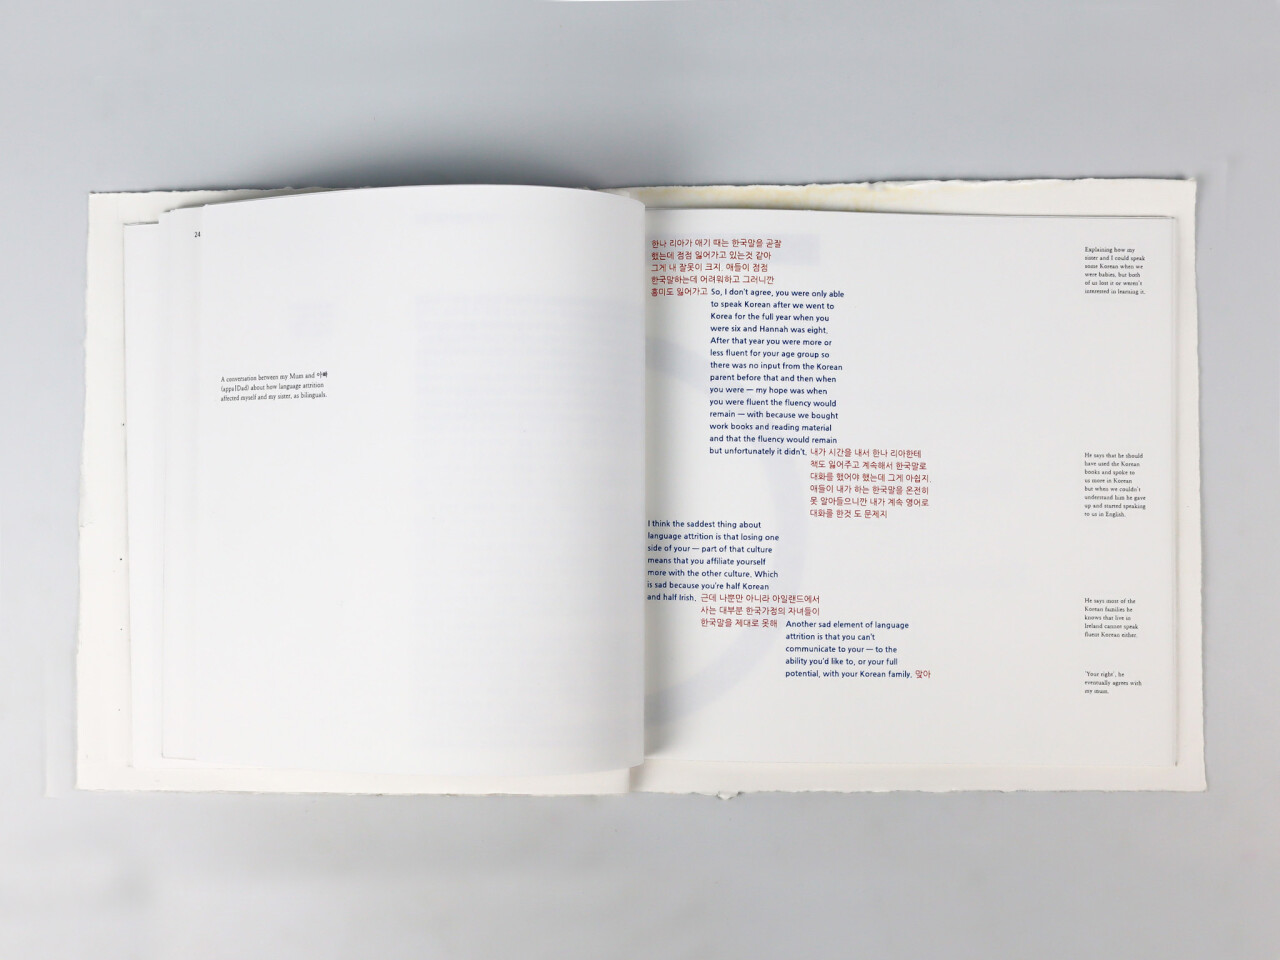 24
A conversation between my Mum and 아빠
(appa|Dad) about how language attrition
affected myself and my sister, as bilinguals.
한나 리아가 애기 때는 한국말을 곧잘
했는데 점점 잃어가고 있는것 같아
그게 내 잘못이 크지. 애들이 점점
한국말하는데 어려워하고 그러니깐
흥미도 잃어가고 So, I don't agree, you were only able
to speak Korean after we went to
Korea for the full year when you
were six and Hannah was eight.
After that year you were more or
less fluent for your age group so
there was no input from the Korean
parent before that and then when
you were — my hope was when
you were fluent the fluency would
remain — with because we bought
work books and reading material
and that the fluency would remain
but unfortunately it didn't. 내가 시간을 내서 한나 리아한테
책도 읽어주고 계속해서 한국말로
대화를 했어야 했는데 그게 아쉽지.
애들이 내가 하는 한국말을 온전히
못 알아들으니깐 내가 계속 영어로
대화를 한것 도 문제지
I think the saddest thing about
language attrition is that losing one
side of your — part of that culture
means that you affiliate yourself
more with the other culture. Which
is sad because you're half Korean
and half Irish. 근데 나뿐만 아니라 아일랜드에서
사는 대부분 한국가정의 자녀들이
한국말을 제대로 못해 Another sad element of language
attrition is that you can't
communicate to your — to the
ability you'd like to, or your full
potential, with your Korean family. 맞아
Explaining how my
sister and I could speak
some Korean when we
were babies, but both
of us lost it or weren't
interested in learning it.
He says that he should
have used the Korean
books and spoke to
us more in Korean
but when we couldn't
understand him he gave
up and started speaking
to us in English.
He says most of the
Korean families he
knows that live in
Ireland cannot speak
fluent Korean either.
'Your right', he
eventually agrees with
my mum.